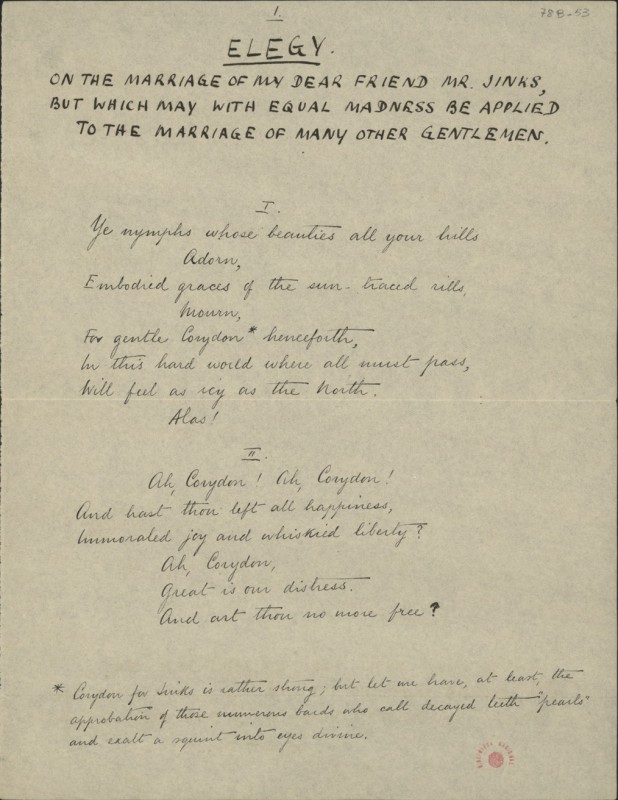 1.
78B-53
ELEGY.
ON THE MARRIAGE OF MY DEAR FRIEND MR. JINKS,
BUT WHICH MAY WITH EQUAL MADNESS BE APPLIED
TO THE MARRIAGE OF MANY OTHER GENTLEMEN.
I.
Ye nymphs whose beauties all your hills
Adorn,
Embodied graces of the sun-traced rills,
Mourn,
For gentle Corydon* henceforth,
In this hard world where all must pass,
Will feel as icy as the North.
Alas!
II.
Ah, Corydon! Ah, Corydon!
And hast thou left all happiness,
Unmoraled joy and whiskied liberty?
Ah, Corydon,
Great is our distress.
And art thou no more free?
* Corydon for Jinks is rather strong; but let me have, at least, the
approbation of those numerous bards who call decayed teeth "pearls"
and exalt a squint into eyes divine.